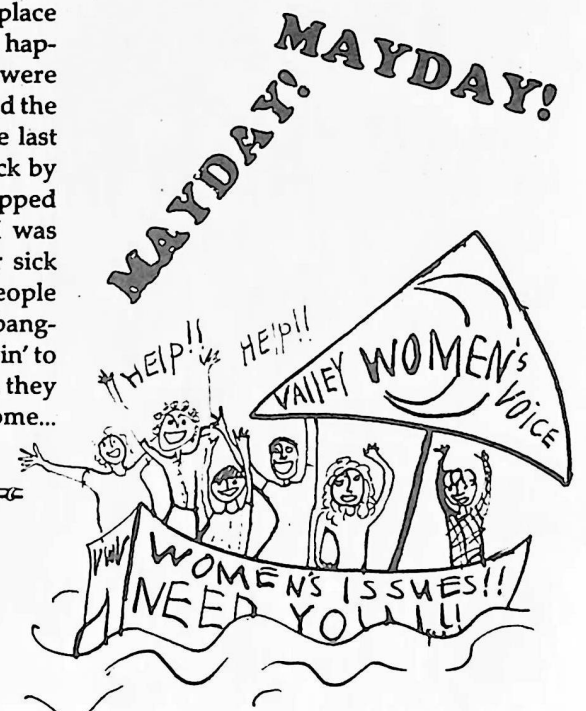 place
hap-
were
d the
e last
ck by
pped
was
r sick
eople
bang-
in' to
they
ome...
MAYDAY!
MAYDAY!
HELP!!
HELP!!
VALLEY WOMEN'S
VOICE
VWV
WOMEN'S ISSUES!!
NEED YOU!!!